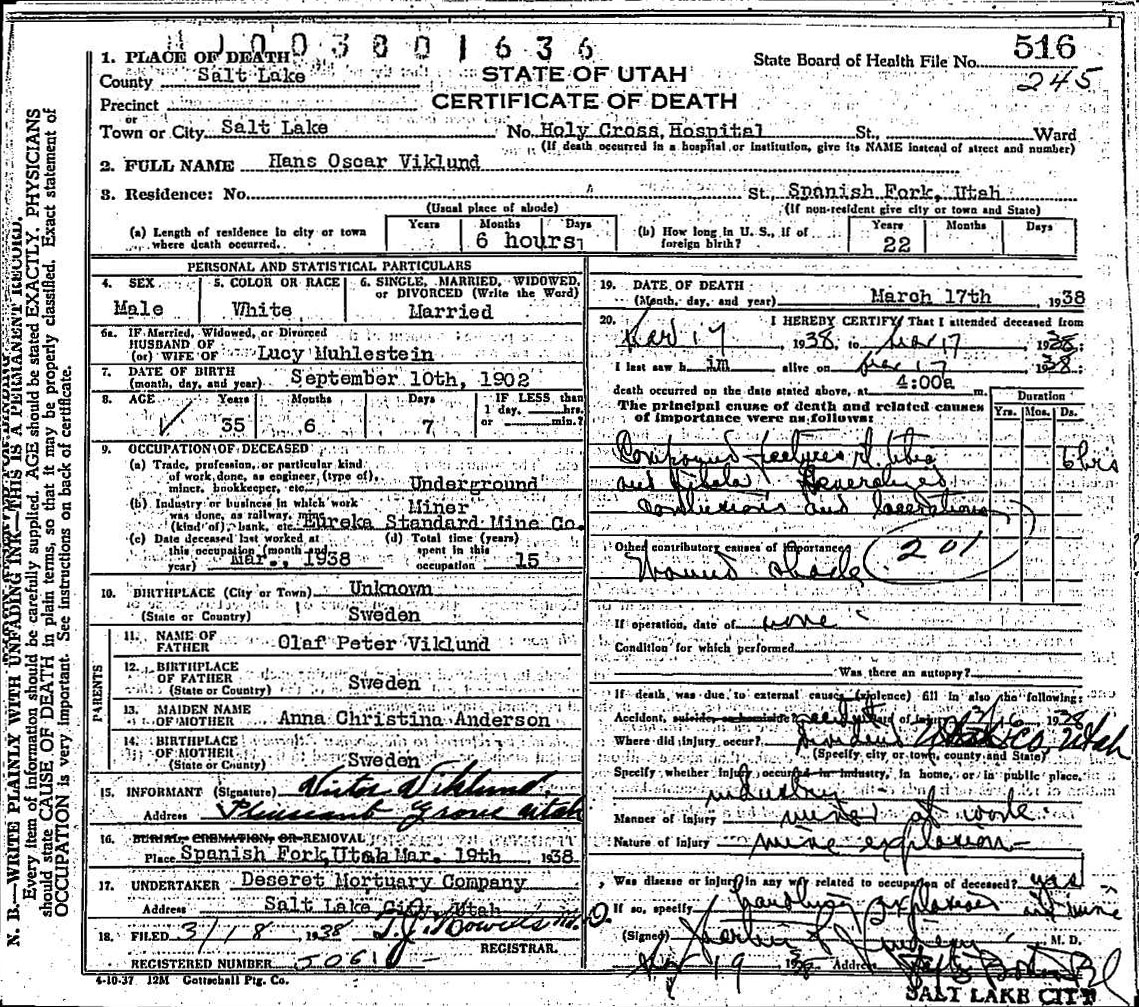 1003801636
State Board of Health File No. 516
245
1. PLACE OF DEATH
County Salt Lake
STATE OF UTAH
CERTIFICATE OF DEATH
Precinct
or
Town or City Salt Lake No. Holy Cross Hospital St., Ward
(If death occurred in a hospital or institution, give its NAME instead of street and number)
2. FULL NAME Hans Oscar Viklund
3. Residence: No. St. Spanish Fork, Utah
(Usual place of abode) (If non-resident give city or town and State)
(a) Length of residence in city or town where death occurred. Years Months Days 6 hours
(b) How long in U. S., if of foreign birth? Years 22 Months Days
PERSONAL AND STATISTICAL PARTICULARS
4. SEX Male
5. COLOR OR RACE White
6. SINGLE, MARRIED, WIDOWED, or DIVORCED (Write the Word) Married
6a. IF Married, Widowed, or Divorced
HUSBAND OF
(or) WIFE OF Lucy Muhlestein
7. DATE OF BIRTH
(month, day, and year) September 10th, 1902
8. AGE Years 35 Months 6 Days 7 IF LESS than 1 day, hrs. or min.?
9. OCCUPATION OF DECEASED
(a) Trade, profession, or particular kind
of work done, as engineer, (type of),
miner, bookkeeper, etc. Underground
(b) Industry or business in which work Miner
was done, as railway, mine
(kind of), bank, etc. Eureka Standard Mine Co.
(c) Date deceased last worked at
this occupation (month and
year) Mar., 1938
(d) Total time (years)
spent in this
occupation 15
10. BIRTHPLACE (City or Town) Unknown
(State or Country) Sweden
PARENTS
11. NAME OF
FATHER Olaf Peter Viklund
12. BIRTHPLACE
OF FATHER
(State or Country) Sweden
13. MAIDEN NAME
OF MOTHER Anna Christina Anderson
14. BIRTHPLACE
OF MOTHER
(State or Country) Sweden
15. INFORMANT (Signature) Victor Viklund
Address Pleasant Grove Utah
16. BURIAL, CREMATION, OR REMOVAL
Place Spanish Fork, Utah Mar. 19th 1938
17. UNDERTAKER Deseret Mortuary Company
Address Salt Lake City, Utah
18. FILED 3/18 1938
REGISTRAR.
REGISTERED NUMBER
4-10-37 12M Gottschall Ptg. Co.
19. DATE OF DEATH
(Month, day, and year) March 17th 1938
20. I HEREBY CERTIFY That I attended deceased from
Mar 17, 1938, to Mar 17 1938;
I last saw him alive on Mar 17 1938;
death occurred on the date stated above, at 4:00a m.
The principal cause of death and related causes
of importance were as follows:
Duration
Yrs. Mos. Ds.
Compound fractures rt. tibia 6 hrs
and fibula Generalized
contusions and lacerations
Other contributory causes of importance 201
Wound shock
If operation, date of none
Condition for which performed
Was there an autopsy?
If death was due to external causes (violence) fill in also the following:
Accident, suicide, or homicide? accident Date of injury 3/16 1938
Where did injury occur? Dividend Utah Co, Utah
(Specify city or town, county and State)
Specify whether injury occurred in industry, in home, or in public place.
industry
Manner of Injury miner at work
Nature of Injury mine explosion
Was disease or injury in any way related to occupation of deceased? yes
If so, specify handling explosives in mine
(Signed) M. D.
19 1938 Address
SALT LAKE CITY
N. B.—WRITE PLAINLY WITH UNFADING INK—THIS IS A PERMANENT RECORD.
Every item of information should be carefully supplied. AGE should be stated EXACTLY. PHYSICIANS
should state CAUSE OF DEATH in plain terms, so that it may be properly classified. Exact statement of
OCCUPATION is very important. See instructions on back of certificate.